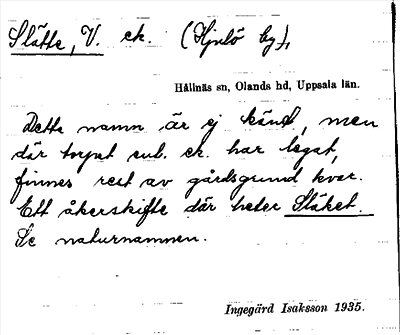 Slätte, V. ek. (Hjälö by),
Hållnäs sn, Olands hd, Uppsala län.
Detta namn är ej känd, men
där torpet enl. ek. har legat,
finnes rest av gårdsgrund kvar.
Ett åkerskifte där heter Släket.
Se naturnamnen.
Ingegärd Isaksson 1935.